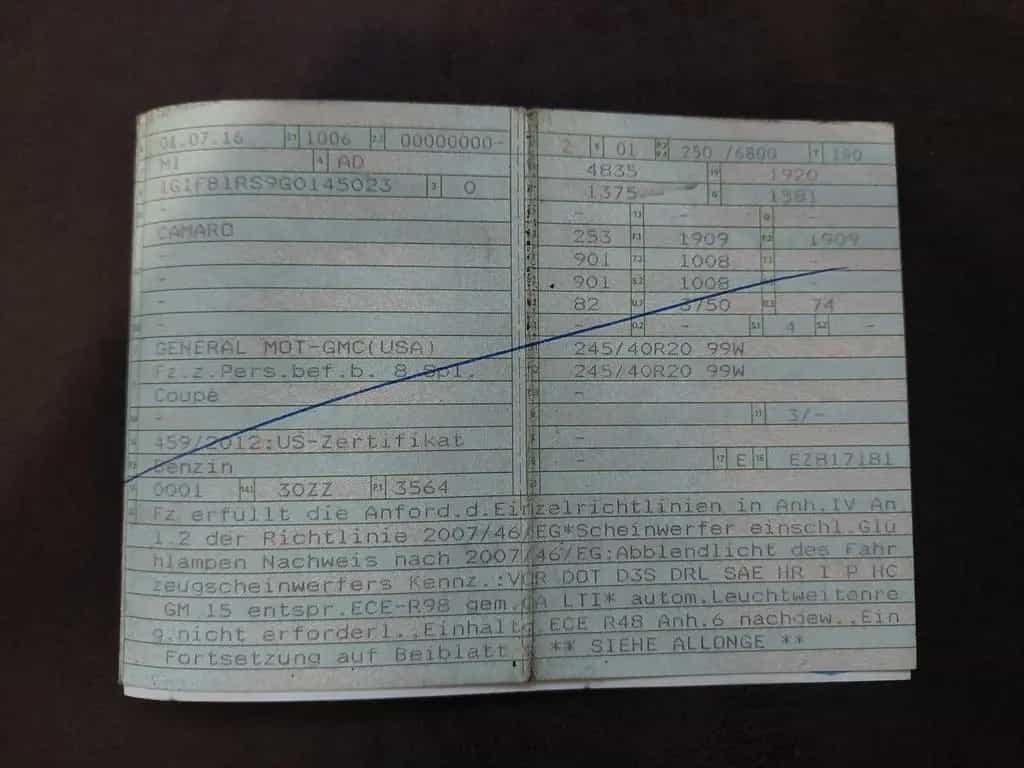 01.07.16 2.1 1006 2.2 00000000-
M1 4 AD
1G1FB1RS9G0145023 3 0
-
CAMARO
-
-
-
-
GENERAL MOT-GMC(USA)
Fz.z.Pers.bef.b. 8 Spl.
Coupe
-
459/2012:US-Zertifikat
Benzin
0001 30ZZ P.1 3564
2 01 250 /6800 T 190
4835 1920
1375 1581
- - -
253 1909 1909
901 1008 -
901 1008 -
82 3750 74
- 0.2 - S.1 4 S.2 -
245/40R20 99W
245/40R20 99W
-
- 11 3/-
-
- 17 E 16 EZ817181
Fz erfüllt die Anford.d.Einzelrichtlinien in Anh.IV An
l.2 der Richtlinie 2007/46/EG*Scheinwerfer einschl.Glü
hlampen Nachweis nach 2007/46/EG:Abblendlicht des Fahr
zeugscheinwerfers Kennz.:VOR DOT D3S DRL SAE HR I P HC
GM 15 entspr.ECE-R98 gem.GA LTI* autom.Leuchtweitenre
g.nicht erforderl..Einhaltg ECE R48 Anh.6 nachgew..Ein
Fortsetzung auf Beiblatt ** SIEHE ALLONGE **